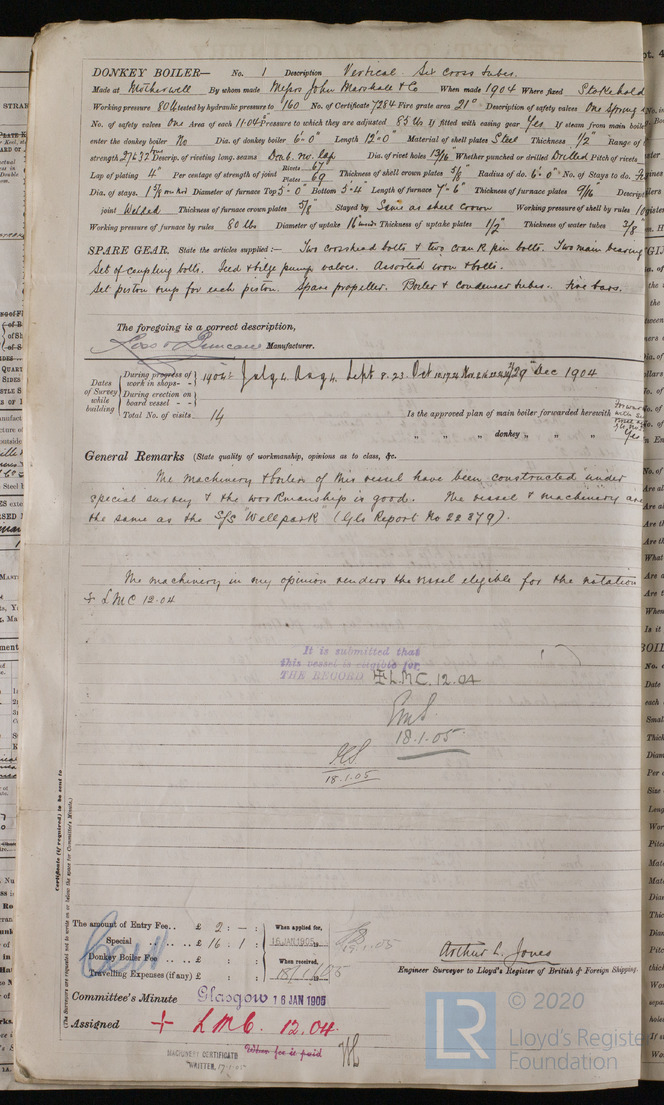 DONKEY BOILER— No. 1 Description Vertical Six Cross tubes.
Made at Motherwell By whom made Messrs John Marshall & Co When made 1904 Where fixed Stokehold
Working pressure 80 lb tested by hydraulic pressure to 160 No. of Certificate 7284 Fire grate area 21 Description of safety valves One Spring
No. of safety valves One Area of each 11.04 Pressure to which they are adjusted 85 lbs If fitted with easing gear Yes If steam from main boilers
enter the donkey boiler No Dia. of donkey boiler 6'-0" Length 12'-0" Material of shell plates Steel Thickness 1/2" Range of
strength 27 & 32 Descrip. of riveting long. seams Doub. riv. lap Dia. of rivet holes 13/16" Whether punched or drilled Drilled Pitch of rivets
Lap of plating 4" Per centage of strength of joint Rivets 67 Plates 69 Thickness of shell crown plates 5/8" Radius of do. 6'-0" No. of Stays to do.
Dia. of stays. 1 5/8 Diameter of furnace Top 5'-0" Bottom 5'-4" Length of furnace 7'-6" Thickness of furnace plates 9/16"
joint Welded Thickness of furnace crown plates 5/8" Stayed by Same as shell crown Working pressure of shell by rules
Working pressure of furnace by rules 80 lbs Diameter of uptake 16" Thickness of uptake plates 1/2" Thickness of water tubes 3/8"
SPARE GEAR. State the articles supplied:— Two crosshead bolts & two crank pin bolts. Two main bearing
Set of coupling bolts. Feed & bilge pump valves. Assorted iron & bolts.
Set piston rings for each piston. Spare propeller. Boiler & condenser tubes. Fire bars.
The foregoing is a correct description,
Ross & Duncan Manufacturer.
Dates of Survey while building
During progress of work in shops - - 1904: July 4. Aug 4. Sept 8. 23. Oct 29 Dec 1904
During erection on board vessel - -
Total No. of visits 14 Is the approved plan of main boiler forwarded herewith
" " " donkey " " " Yes
General Remarks (State quality of workmanship, opinions as to class, &c.
The machinery & boilers of this vessel have been constructed under
special survey & the workmanship is good. The vessel & machinery are
the same as the S/S "Wellpark" (Gls Report No 22879).
The machinery in my opinion renders the vessel eligible for the notation
+ LMC 12.04
It is submitted that
this vessel is eligible for
THE RECORD + LMC. 12.04
18.1.05
18.1.05
Certificate (if required) to be sent to
(The Surveyors are requested not to write on or below the space for Committee's Minute.)
The amount of Entry Fee.. £ 2 : - : When applied for,
Special .. .. .. £ 16 : 1 : 16 JAN 1905
Donkey Boiler Fee .. .. £ : : When received,
Travelling Expenses (if any) £ : : 18/1/1905
Arthur L. Jones
Engineer Surveyor to Lloyd's Register of British & Foreign Shipping.
Committee's Minute Glasgow 16 JAN 1905
Assigned + LMC. 12.04.
When fee is paid
MACHINERY CERTIFICATE
WRITTEN. 17.1.05
LR
© 2020
Lloyd's Register
Foundation